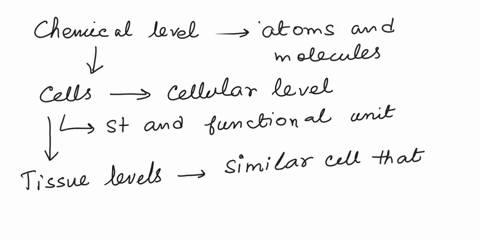 Chemical level → atoms and
molecules
↓
Cells → cellular level
↳ st and functional unit
↓
Tissue levels → similar cell that